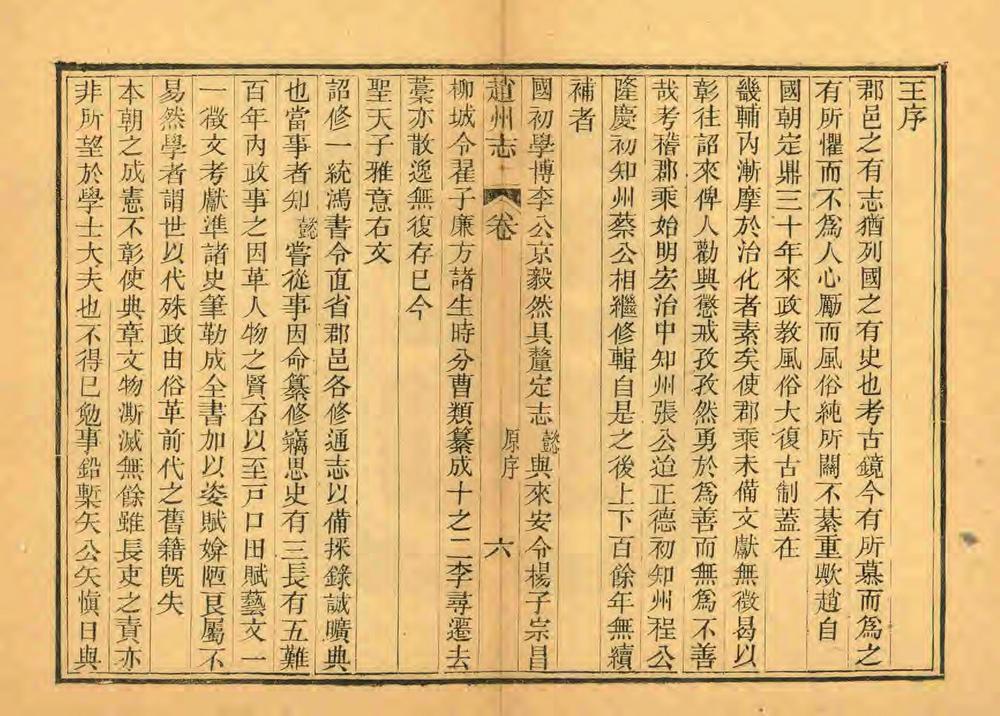 王序
郡邑之有志猶列國之有史也考古鏡今有所慕而爲之
有所懼而不爲人心勵而風俗純所關不綦重歟趙自
國朝定鼎三十年來政敎風俗大復古制蓋在
畿輔內漸摩於治化者素矣使郡乘未備文獻無徵曷以
彰往詔來俾人勸興懲戒孜孜然勇於爲善而無爲不善
哉考稽郡乘始明宏治中知州張公迨正德初知州程公
隆慶初知州蔡公相繼修輯自是之後上下百餘年無續
補者
國初學博李公京毅然具釐定志懿與來安令楊子宗昌
趙州志 卷 原序 六
柳城令翟子廉方諸生時分曹類纂成十之二李尋遷去
藁亦散逸無復存已今
聖天子雅意右文
詔修一統鴻書令直省郡邑各修通志以備採錄誠曠典
也當事者知懿嘗從事因命纂修竊思史有三長有五難
百年內政事之因革人物之賢否以至戸口田賦藝文一
一徵文考獻準諸史筆勒成全書加以姿賦媕陋艮屬不
易然學者謂世以代殊政由俗革前代之舊籍旣失
本朝之成憲不彰使典章文物澌滅無餘雖長吏之責亦
非所望於學士大夫也不得已勉事鉛槧矢公矢愼日與